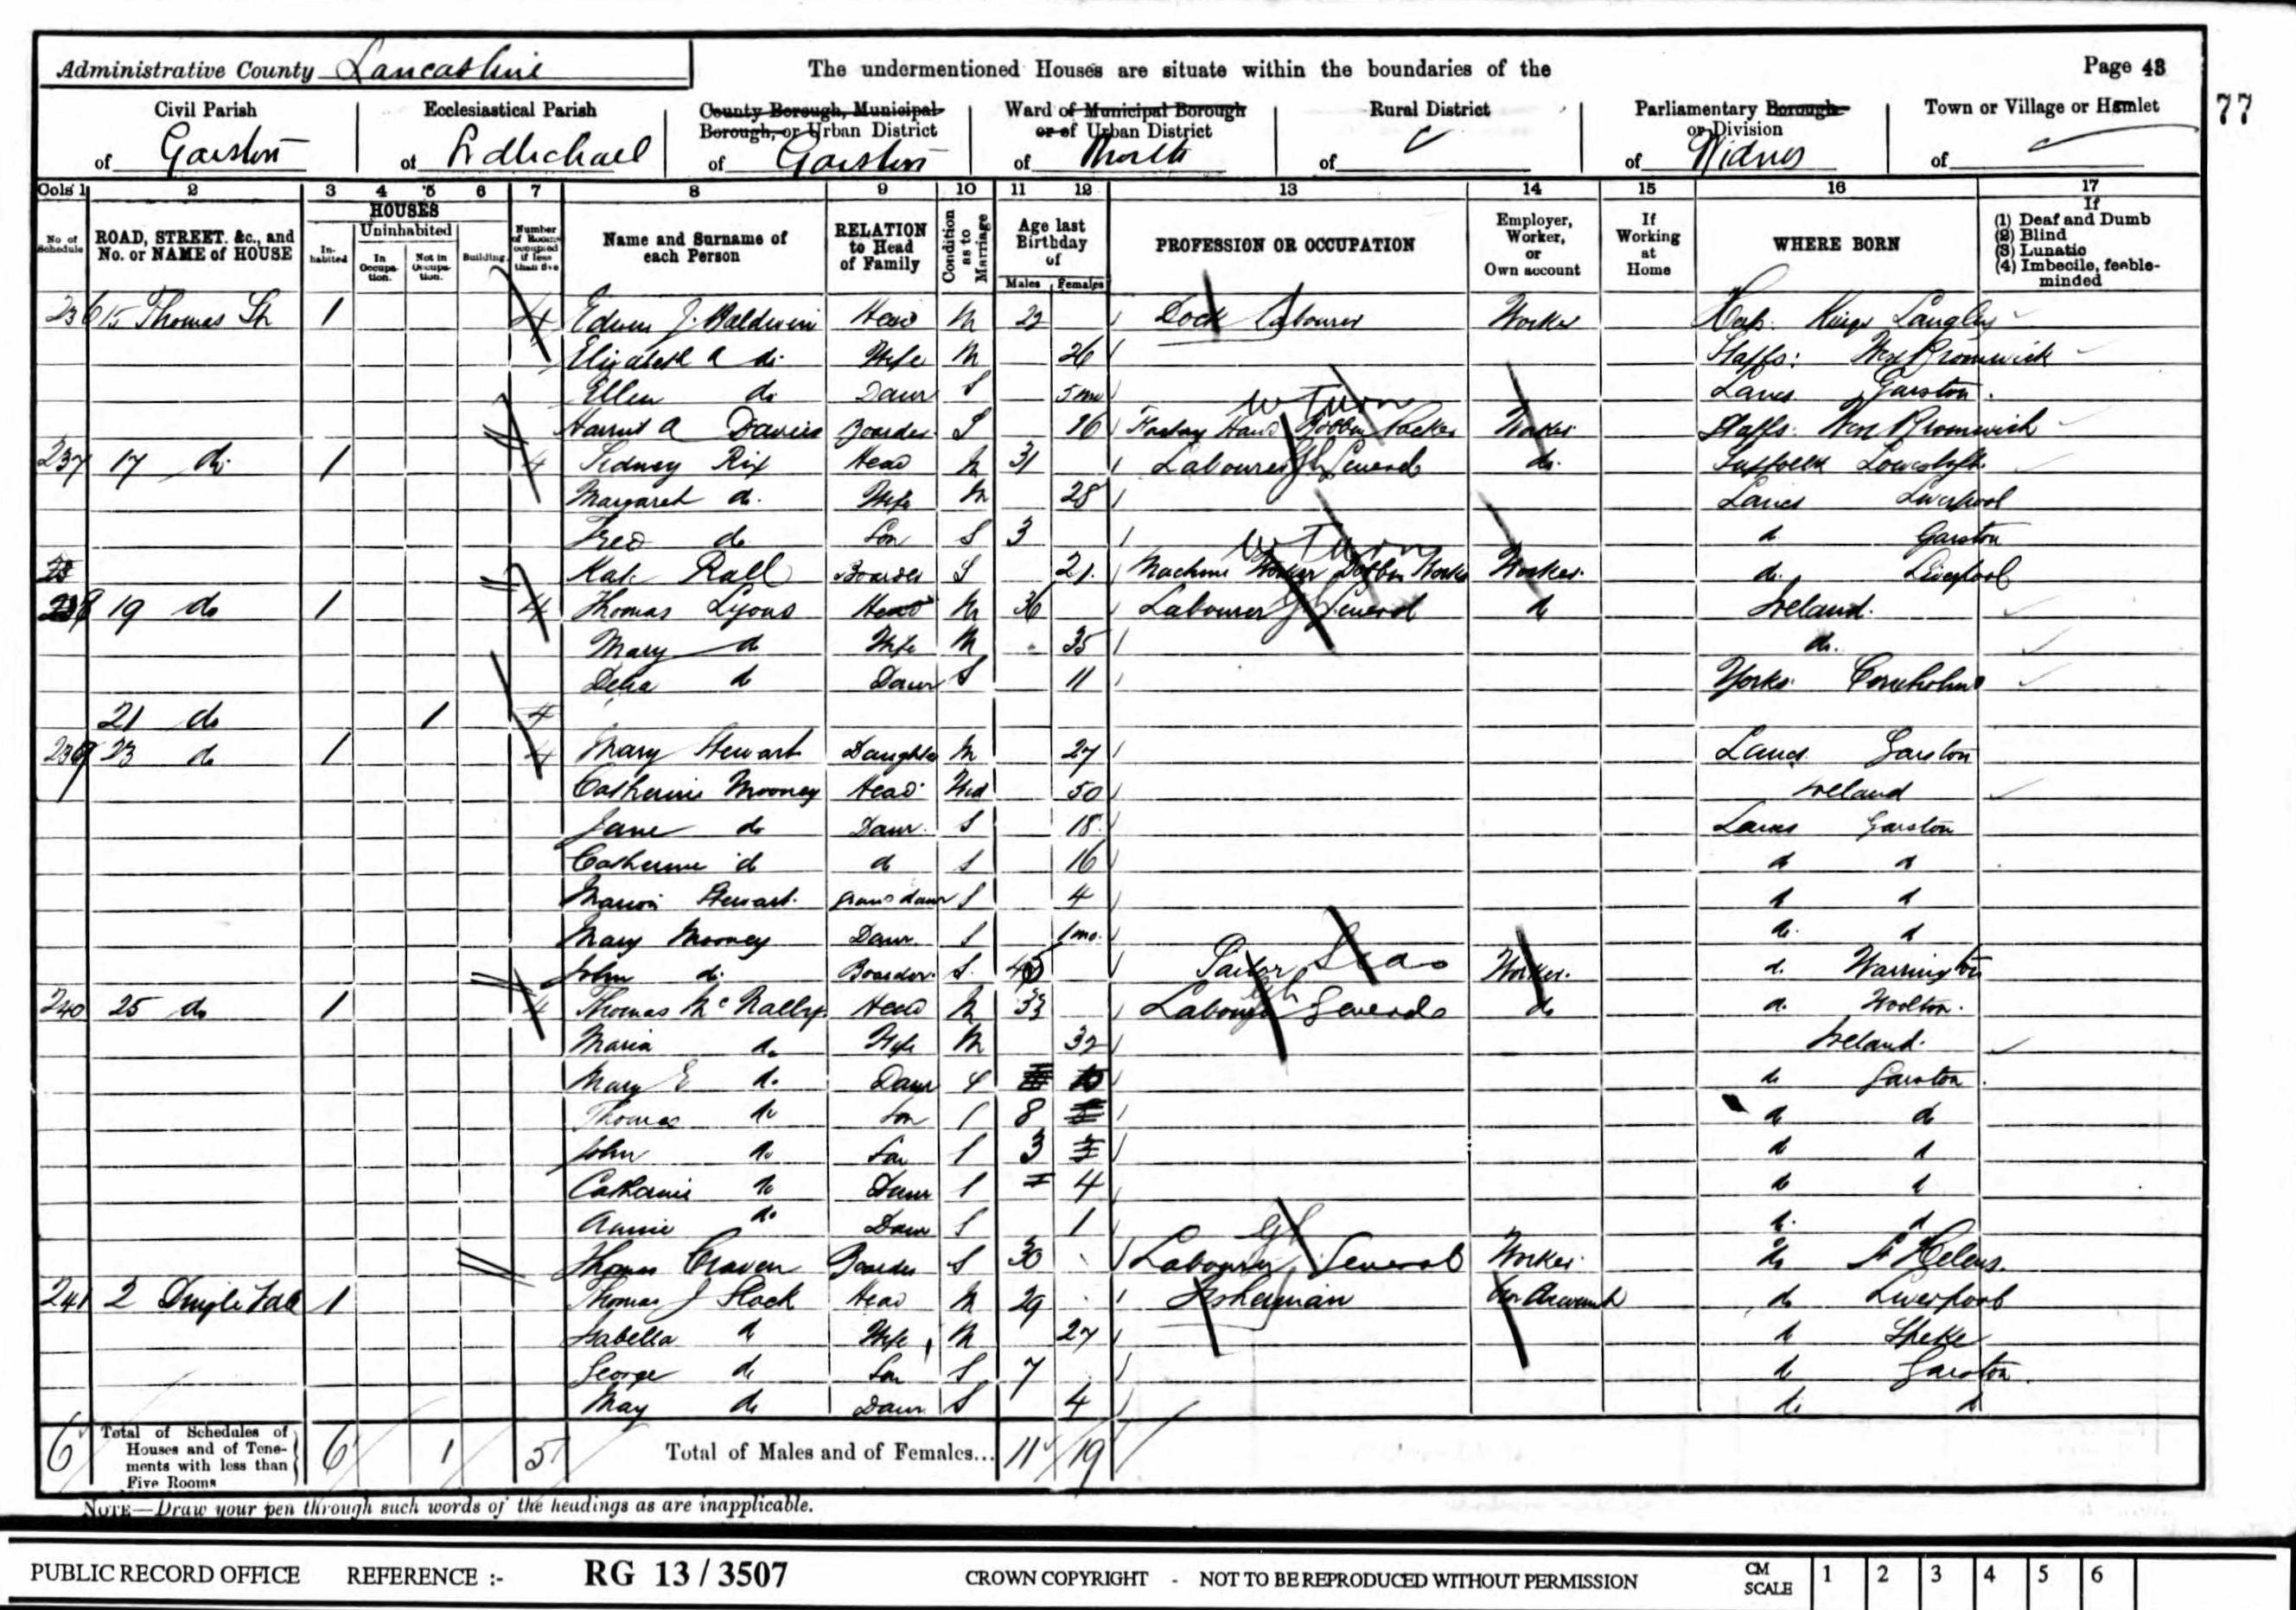 Administrative County Lancashire The undermentioned Houses are situate within the boundaries of the Page 43
77
Civil Parish Ecclesiastical Parish County Borough, Municipal Borough, or Urban District Ward of Municipal Borough or of Urban District Rural District Parliamentary Borough or Division Town or Village or Hamlet
of Garston of St Michael of Garston of North of of Widnes of
Cols 1 2 3 4 5 6 7 8 9 10 11 12 13 14 15 16 17
No of Schedule ROAD, STREET. &c., and No. or NAME of HOUSE HOUSES Inhabited Uninhabited In Occupation. Not in Occupation. Building Number of Rooms occupied if less than five Name and Surname of each Person RELATION to Head of Family Condition as to Marriage Age last Birthday of Males Females PROFESSION OR OCCUPATION Employer, Worker, or Own account If Working at Home WHERE BORN If (1) Deaf and Dumb (2) Blind (3) Lunatic (4) Imbecile, feeble-minded
236 15 Thomas St 1 4 Edwin J. Baldwin Head M 22 Dock Labourer Worker Kings Langley
Elizabeth A do Wife M 26 Staffs: West Bromwick
Ellen do Daur S 5 mo Lancs Garston
Harriet A Davies Boarder S 16 Factory Hand Bobbin Packer Worker Staffs. West Bromwich
237 17 do 1 4 Sidney Rix Head M 31 Labourer General do Suffolk Lowestoft
Margaret do. Wife M 28 Lancs Liverpool
Fred do Son S 3 d. Garston
Kate Rall Boarder S 21 Machine Worker Bobbin Works Worker do. Liverpool
238 19 do 1 4 Thomas Lyons Head M 36 Labourer General do Ireland.
Mary do Wife M 35 do.
Delia do Daur S 11 Yorks Cornholme
21 do 1 4
239 23 do 1 4 Mary Stewart Daughter M 27 Lancs Garston
Catherine Mooney Head Wid 50 Ireland
Jane do Daur. S 18 Lancs Garston
Catherine d d S 16 d d
Marion Stewart grand daur S 4 d d
Mary Mooney Daur. S 1 mo. do. d
John do. Boarder. S. 45 Sailor Sea Worker. d. Warrington
240 25 do 1 4 Thomas McNally Head M 33 Labourer General do d. Woolton.
Maria do Wife M 32 Ireland.
Mary E do. Daur S 10 do Garston
Thomas do Son S 8 d d
John do Son S 3 d d
Catherine do Daur S 4 d d
Annie do Daur S 1 d. d
Thomas Craven Boarder S 30 Labourer General Worker do St Helens.
241 2 Dingle Vale 1 Thomas J Slack Head M 29 Fisherman Own Account do Liverpool
Isabella d Wife M 27 d Speke
George do Son S 7 d Garston.
May do Daur S 4 d. d
6 Total of Schedules of Houses and of Tenements with less than Five Rooms 6 1 5 Total of Males and of Females... 11 19
NOTE—Draw your pen through such words of the headings as are inapplicable.
PUBLIC RECORD OFFICE REFERENCE :- RG 13 / 3507 CROWN COPYRIGHT - NOT TO BE REPRODUCED WITHOUT PERMISSION CM SCALE 1 2 3 4 5 6